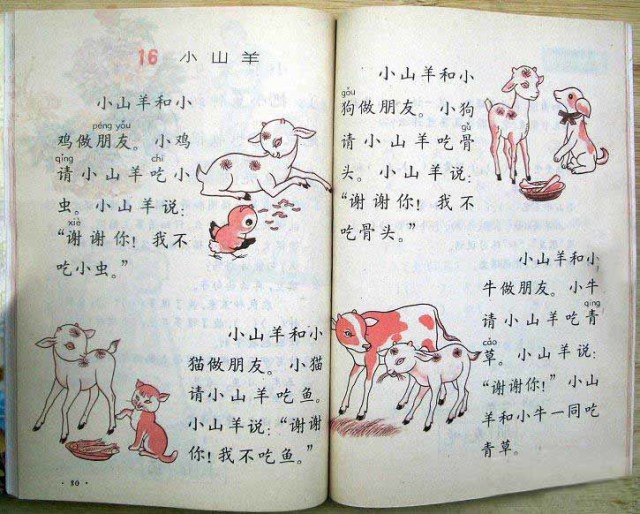 16 小山羊
小山羊和小
péng yǒu
鸡做朋友。小鸡
qǐng chī
请小山羊吃小
虫。小山羊说：
xiè
“谢谢你！我不
吃小虫。”
小山羊和小
猫做朋友。小猫
请小山羊吃鱼。
小山羊说：“谢谢
你！我不吃鱼。”
·30·
小山羊和小
gǒu
狗做朋友。小狗
gǔ
请小山羊吃骨
头。小山羊说：
“谢谢你！我不
吃骨头。”
小山羊和小
牛做朋友。小牛
qīng
请小山羊吃青
cǎo
草。小山羊说：
“谢谢你！”小山
羊和小牛一同吃
青草。